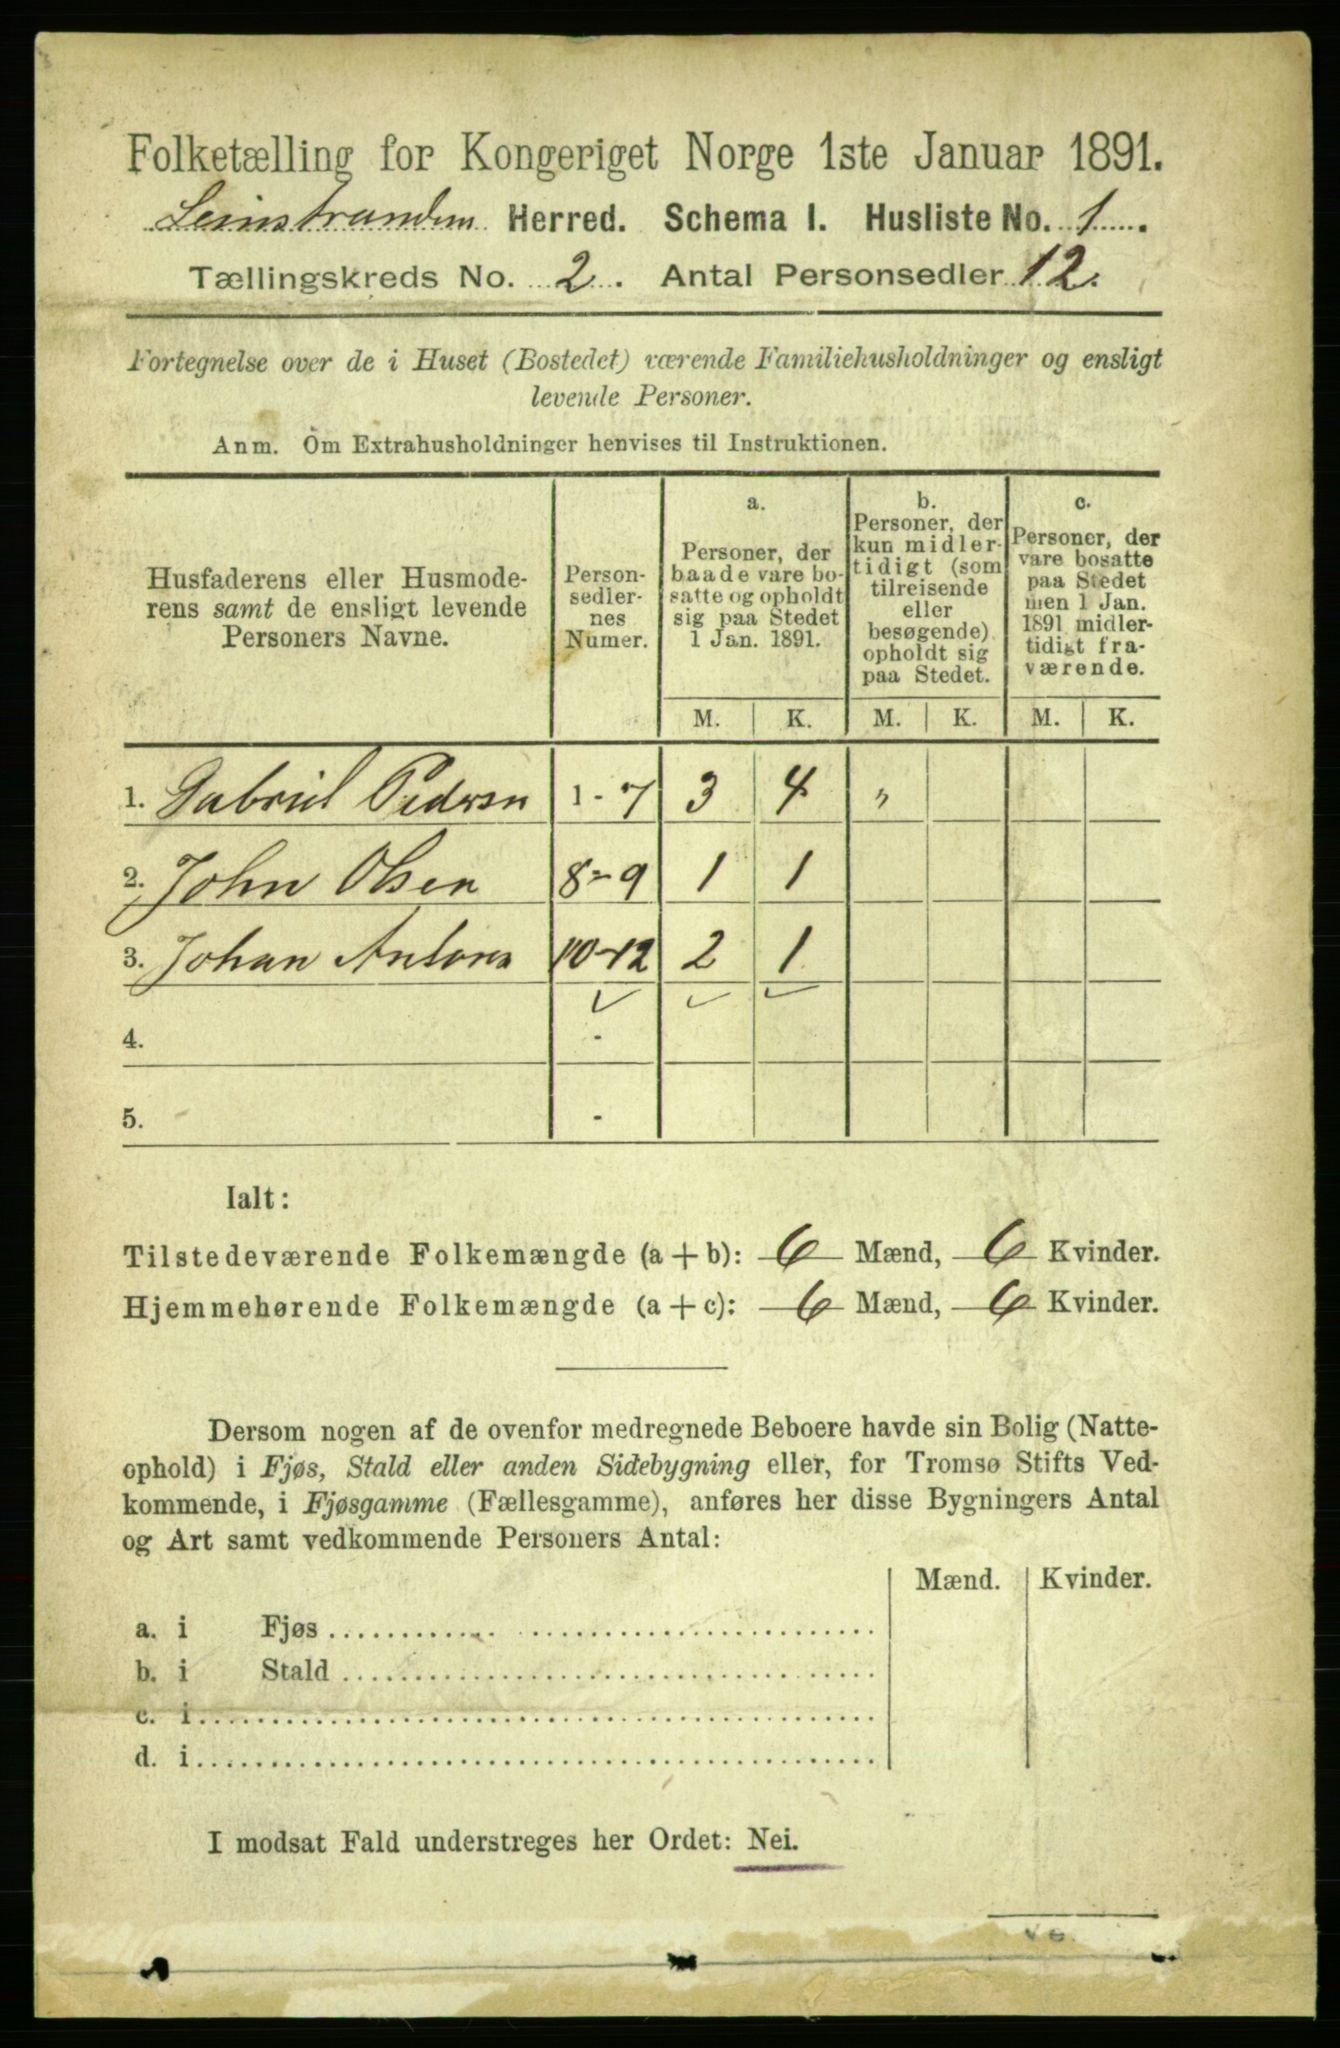 Folketælling for Kongeriget Norge 1ste Januar 1891.
Leinstranden Herred. Schema I. Husliste No. 1.
Tællingskreds No. 2. Antal Personsedler 12.
Fortegnelse over de i Huset (Bostedet) værende Familiehusholdninger og ensligt
levende Personer.
Anm. Om Extrahusholdninger henvises til Instruktionen.
Husfaderens eller Husmode-
rens samt de ensligt levende
Personers Navne.
Person-
sedler-
nes
Numer.
a.
Personer, der
baade vare bo-
satte og opholdt
sig paa Stedet
1 Jan. 1891.
b.
Personer, der
kun midler-
tidigt (som
tilreisende
eller
besøgende)
opholdt sig
paa Stedet.
c.
Personer, der
vare bosatte
paa Stedet
men 1 Jan.
1891 midler-
tidigt fra-
værende.
M. K. M. K. M. K.
1. Gabriel Pedersen 1-7 3 4 "
2. John Olsen 8-9 1 1
3. Johan Antons 10-12 2 1
4. -
5. -
Ialt:
Tilstedeværende Folkemængde (a + b): 6 Mænd, 6 Kvinder.
Hjemmehørende Folkemængde (a + c): 6 Mænd, 6 Kvinder.
Dersom nogen af de ovenfor medregnede Beboere havde sin Bolig (Natte-
ophold) i Fjøs, Stald eller anden Sidebygning eller, for Tromsø Stifts Ved-
kommende, i Fjøsgamme (Fællesgamme), anføres her disse Bygningers Antal
og Art samt vedkommende Personers Antal:
Mænd. Kvinder.
a. i Fjøs
b. i Stald
c. i
d. i
I modsat Fald understreges her Ordet: Nei.